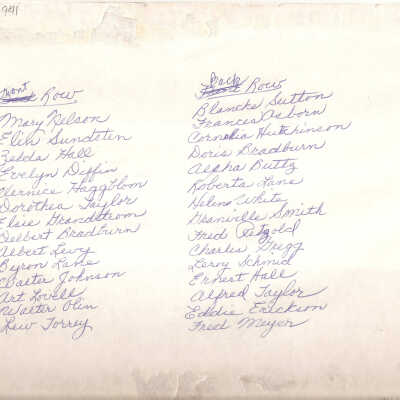 Front Row
Mary Nelson
Elin Sundsten
Zelda Hall
Evelyn Diffin
Vernice Haggblom
Dorothea Taylor
Elsie Grandstrom
Delbert Bradburn
Albert Levy
Byron Lane
Walter Johnson
Art Lovell
Walter Olin
Lew Torrey
Back Row
Blanche Sutton
Frances Osborn
Cornelia Hutchinson
Doris Bradburn
Alpha Butts
Roberta Lane
Helen White
Granville Smith
Fred
Charles Gregg
Leroy Schmid
Ernest Hall
Alfred Taylor
Eddie Erickson
Fred Meyer